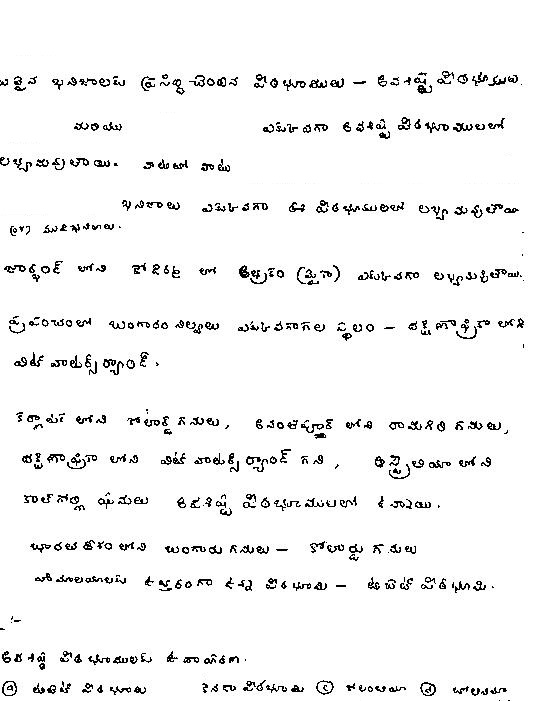 ఖనిజాలకు ప్రసిద్ధి చెందిన పీఠభూములు – అవశిష్ట పీఠభూములు.
మరియు ఎక్కువగా అవశిష్ట పీఠభూములలో
లభ్యమవుతాయి. వాటితో పాటు
ఖనిజాలు ఎక్కువగా ఈ పీఠభూములలో లభ్యమవుతాయి
జార్ఖండ్ లోని కోడెర్మా లో అభ్రకం (మైకా) ఎక్కువగా లభ్యమవుతాయి.
ప్రపంచంలో బంగారం నిల్వలు ఎక్కువగాగల స్థలం – దక్షిణాఫ్రికా లోని
విట్ వాటర్స్ ర్యాండ్.
కర్ణాటక లోని కోలార్డ్ గనులు, అనంతపూర్ లోని రామగిరి గనులు,
దక్షిణాఫ్రికా లోని విట్ వాటర్స్ ర్యాండ్ గని, ఆస్ట్రేలియా లోని
కాల్గూర్లి గనులు అవశిష్ట పీఠభూములలో కలవు.
భారత దేశం లోని బంగారు గనులు – కోలార్డు గనులు
హిమాలయాలకు ఉత్తరంగా ఉన్న పీఠభూమి – టిబెట్ పీఠభూమి.
అవశిష్ట పీఠభూములకు ఉదాహరణ.
(a) టిబెట్ పీఠభూమి కెనడా పీఠభూమి (c) కొలంబియా (d) బొలీవియా